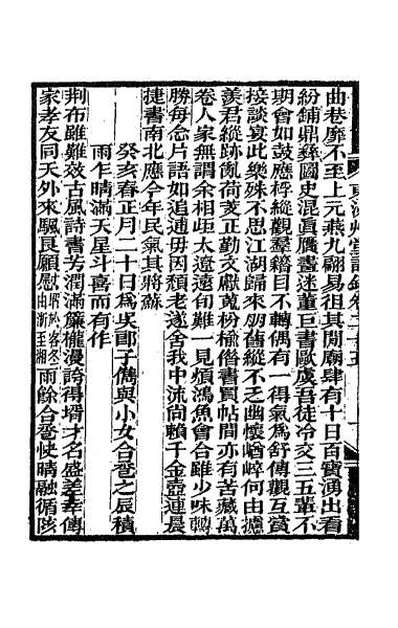 曲巷靡不至上元燕九翩易徂其閒廟肆有十日百寶湧出看
紛鋪鼎彝圖史混眞贋畫迷董巨書歐虞吾徒冷交三五輩不
期會如鼓應桴縱觀羣籍目不轉偶有一得氣爲舒傳觀互賞
接談宴此樂殊不思江湖歸來朋舊縱不乏幽懷崷崪何由攄
羨君縱跡
正勤文獻
楷書買帖閒亦有苦藏萬
卷人家無謂余相歫太遼遠旬難一見煩鴻魚會合雖少味轉
勝每念片語如追逋毋因頹老遂舍我中流尙賴千金壺連晨
捷書南北應今年民氣其將蘇
癸亥春正月二十日爲吳郎子儁與小女合巹之辰積
雨乍晴滿天星斗喜而有作
荆布雖難效古風詩書芳潤滿簾櫳漫誇得壻才名盛差幸傳
家孝友同天外來颿艮願慰
由浙至湘
雨餘合巹快晴融循陔